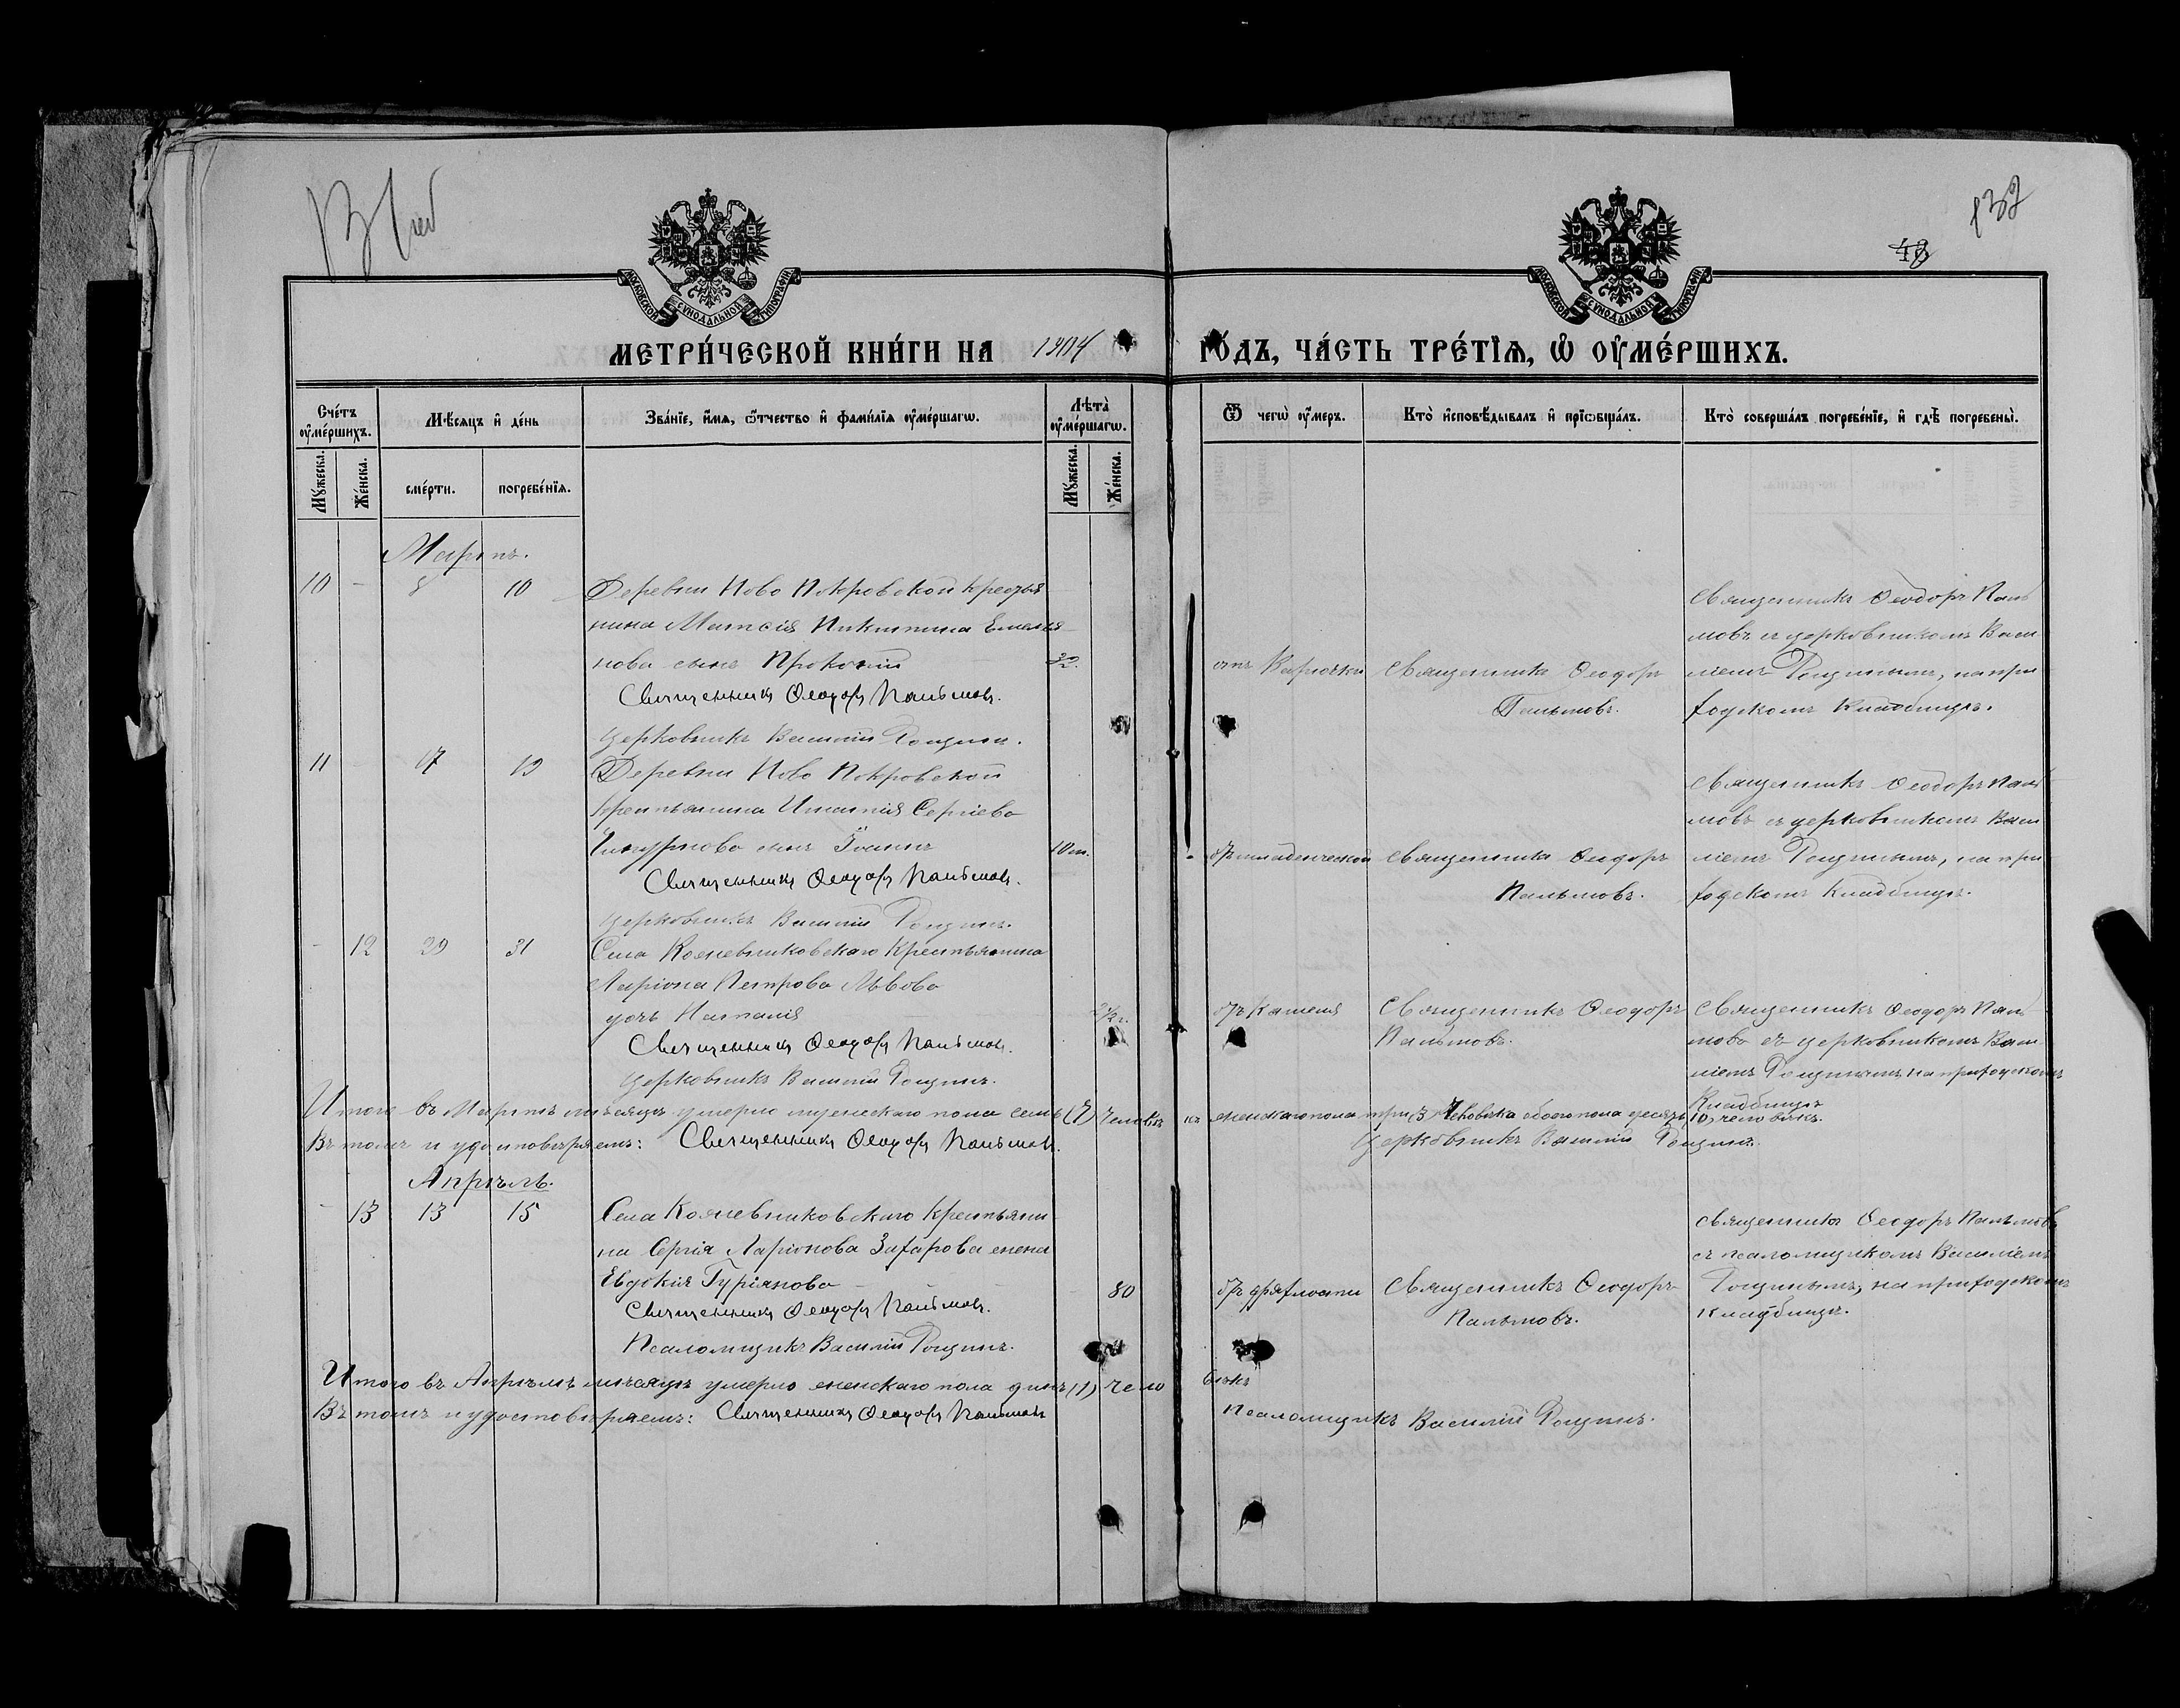 132
МОСКОВСКОЙ СУНОДАЛЬНОЙ ТИПОГРАФІИ
МОСКОВСКОЙ СУНОДАЛЬНОЙ ТИПОГРАФІИ
МЕТРИ́ЧЕСКОЙ КНИ́ГИ НА 1904 ГО́ДЪ, ЧА́СТЬ ТРЕ́ТІѦ, Ѡ҆ ОУ҆МЕ́РШИХЪ.
Сче́тъ оу҆ме́ршихъ.
Мꙋ́жеска.
Же́нска.
Мѣ́сѧцъ и҆ де́нь
сме́рти.
погребе́нїѧ.
Зва́нїе, и҆́мѧ, ѻ҆́тчество и҆ фами́лїѧ оу҆ме́ршагѡ.
Лѣ̑та оу҆ме́ршагѡ.
Мꙋ́жеска.
Же́нска.
Ѿ чегѡ̀ оу҆́меръ.
Кто̀ и҆сповѣ́дывалъ и҆ прїѡбща́лъ.
Кто̀ соверша́лъ погребе́нїе, и҆ гдѣ̀ погребены̀.
Мартъ.
10 - 8 10
Деревни Ново Покровской крестья
нина Матѳія Никитина Емелья
нова сынъ Прокопій
Священникъ Ѳеодоръ Пальмовъ.
Церковникъ Василій Рощинъ.
Священникъ Ѳеодоръ
Пальмовъ.
Священникъ Ѳеодоръ Паль
мовъ съ церковникомъ Васи
ліемъ Рощинымъ, на при
ходскомъ кладбищѣ.
11 17 19
Деревни Ново Покровской
крестьянина Игнатія Сергіева
сынъ Іоаннъ
Священникъ Ѳеодоръ Пальмовъ.
Церковникъ Василій Рощинъ.
10 м.
младенческой
Священникъ Ѳеодоръ
Пальмовъ.
Священникъ Ѳеодоръ Паль
мовъ съ церковникомъ Васи
ліемъ Рощинымъ, на при
ходскомъ кладбищѣ.
- 12 29 31
Села Кожевниковскаго крестьянина
Ларіона Петрова Львова
дочь Наталія
Священникъ Ѳеодоръ Пальмовъ.
Церковникъ Василій Рощинъ.
отъ кашля
Священникъ Ѳеодоръ
Пальмовъ.
Священникъ Ѳеодоръ Паль
мовъ съ церковникомъ Васи
ліемъ Рощинымъ, на приходскомъ
кладбищѣ
Итого въ Мартѣ мѣсяцѣ умерло мужескаго пола семь (7) человѣкъ женскаго пола три (3) человѣка обоего пола десять (10) человѣкъ.
Въ томъ и удостовѣряемъ: Священникъ Ѳеодоръ Пальмовъ. Церковникъ Василій Рощинъ.
Апрѣль.
- 13 13 15
Села Кожевниковскаго крестьяни
на Сергія Ларіонова Захарова жена
Евдокія Гуріянова
Священникъ Ѳеодоръ Пальмовъ.
Псаломщикъ Василій Рощинъ.
80
отъ дряхлости
Священникъ Ѳеодоръ
Пальмовъ.
Священникъ Ѳеодоръ Пальмовъ
съ псаломщикомъ Василіемъ
Рощинымъ, на приходскомъ
кладбищѣ.
Итого въ Апрѣлѣ мѣсяцѣ умерло женскаго пола динъ (1) человѣкъ
Въ томъ и удостовѣряемъ: Священникъ Ѳеодоръ Пальмовъ Псаломщикъ Василій Рощинъ.